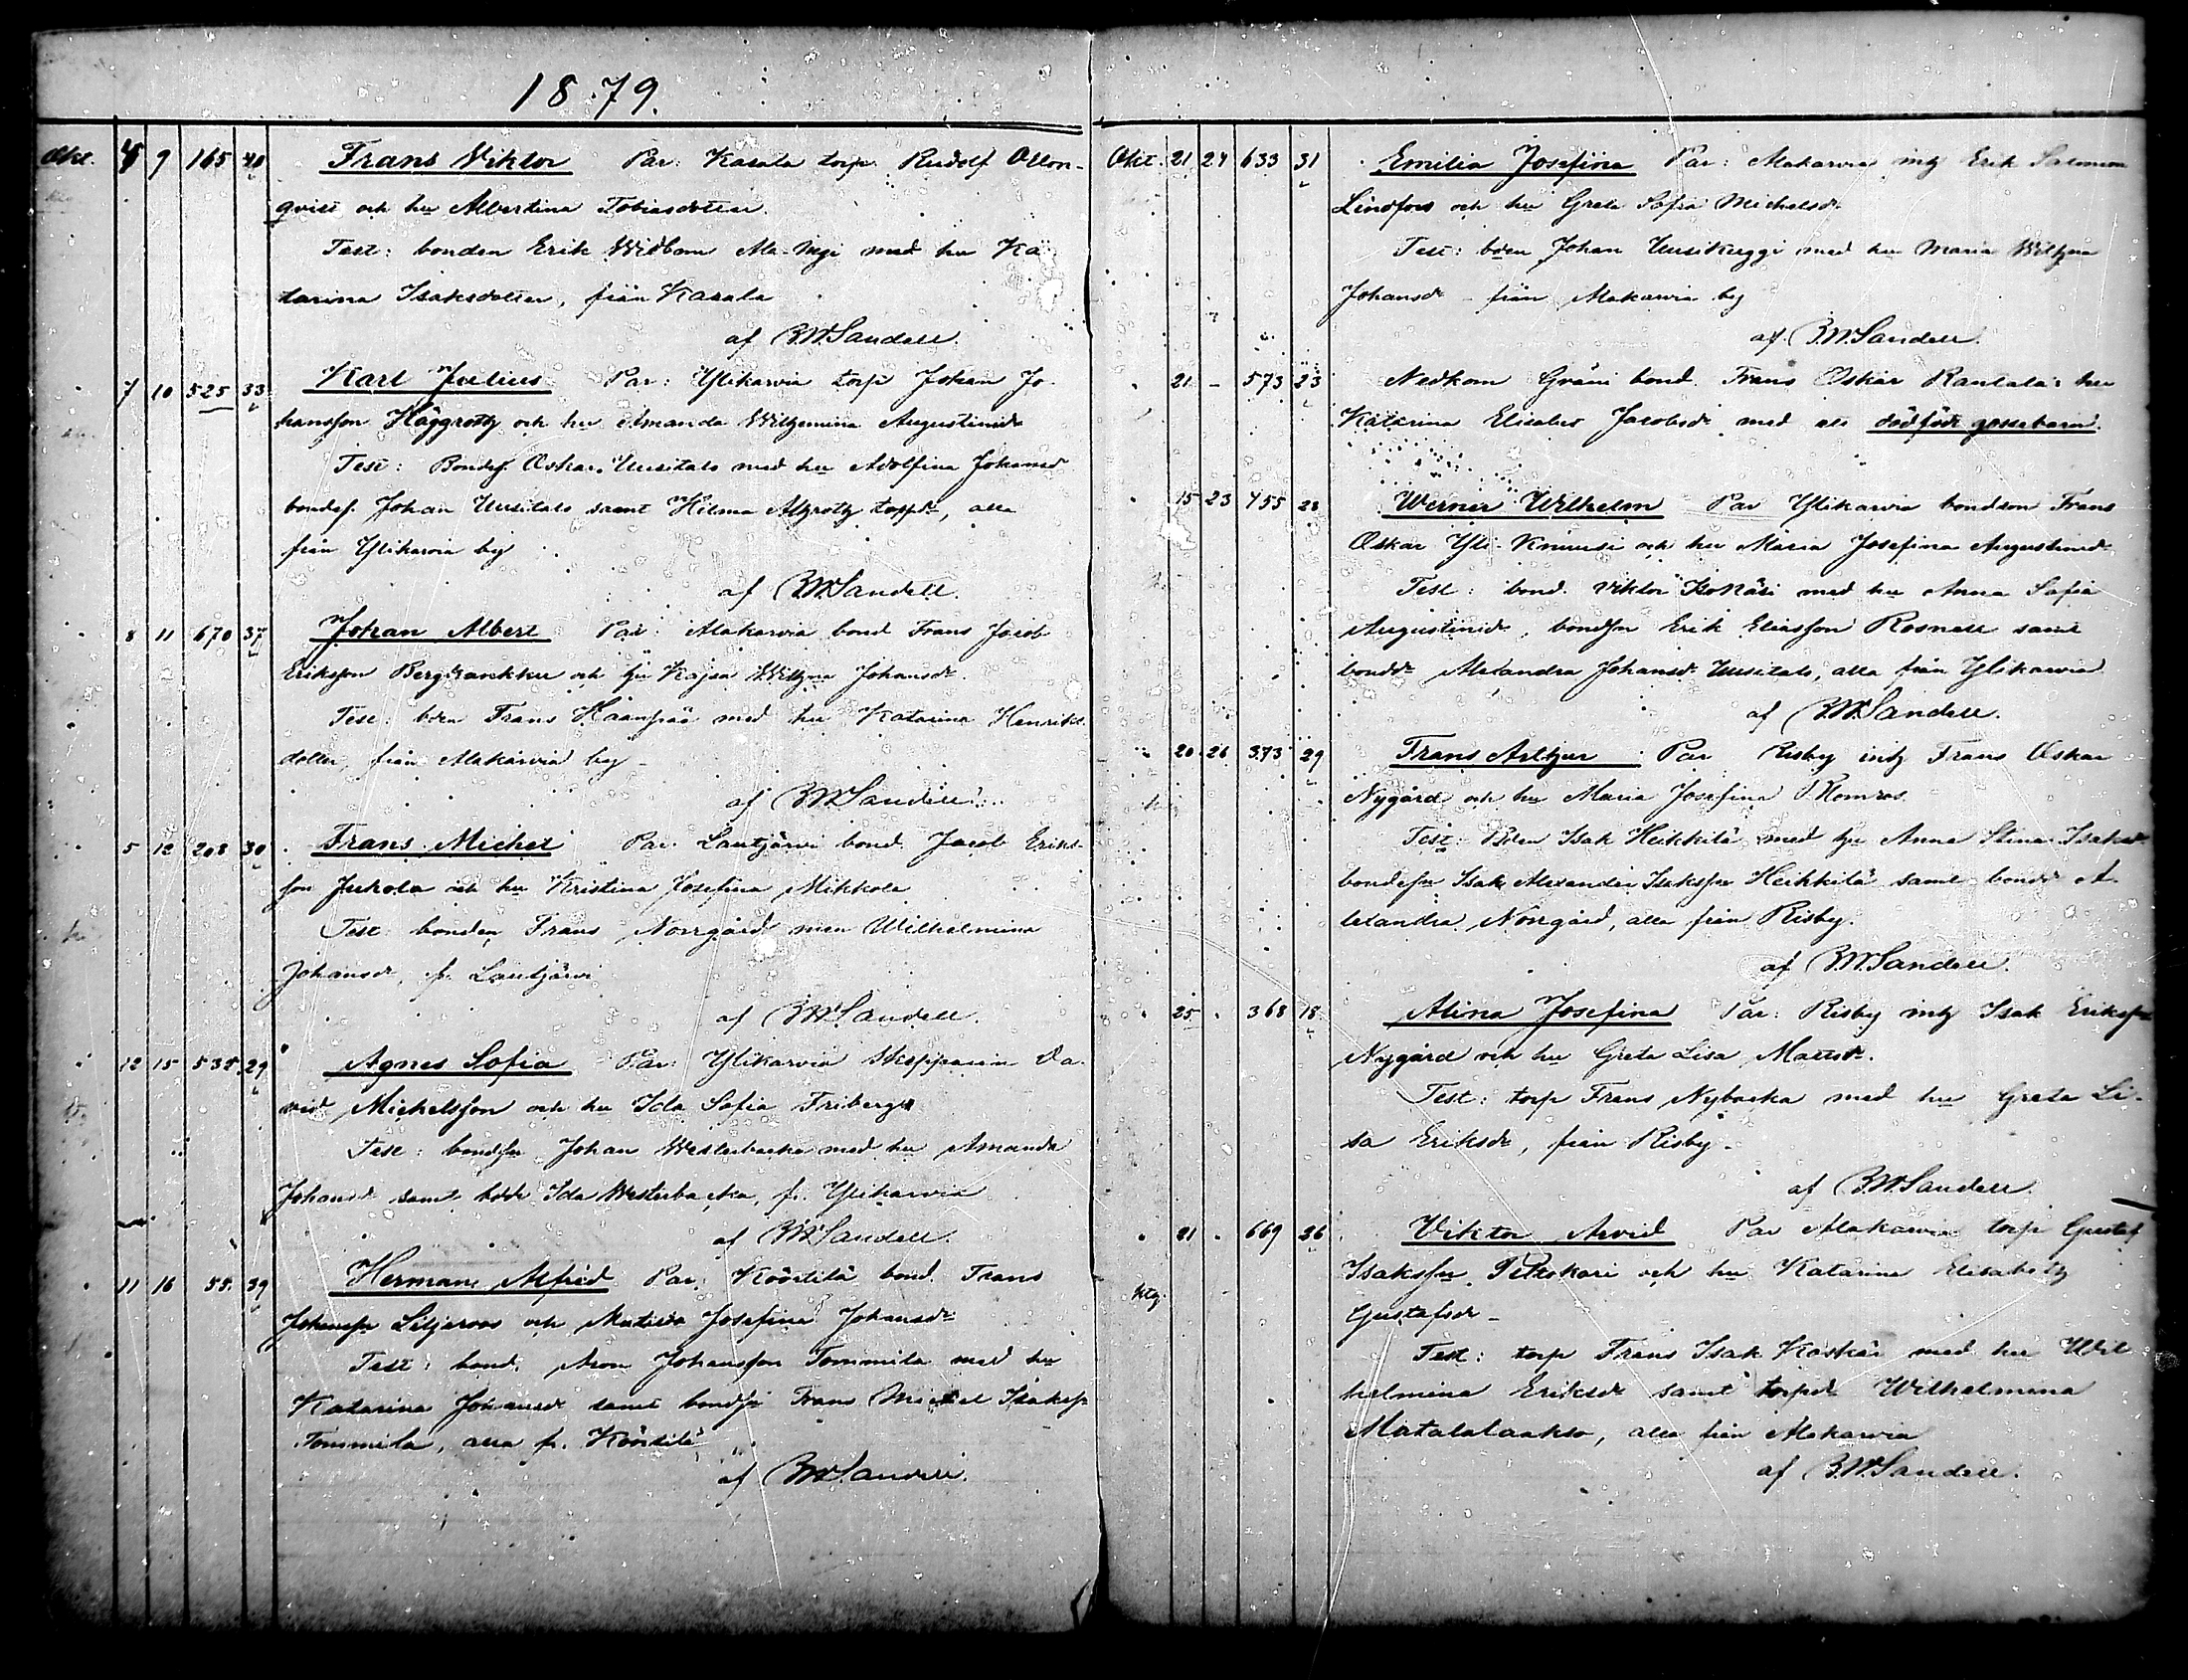 1879.
Okt. 9 165 40 Frans Viktor Par: Kasala torp. Rudolf Ollon-
qvist och hu Albertina Tobiasdotter.
Test: bonden Erik Widbom Ala-Yrji med hu Ka
tarina Isaksdotter, från Kasala
af B.W.Sandell.
7 10 525 33 Karl Julius Par: Ylikarvia torp Johan Jo-
hansson Häggroth och hu Amanda Wilhemina Augustinidr
Test: Bondes. Oskar Uusitalo med hu Adolfina Johansd
bondes. Johan Uusitalo samt Hilma torpdr, alla
från Ylikarvia by
af B.W.Sandell.
8 11 670 37 Johan Albert Par: Alakarvia bond Frans Jacob
Eriksson och hu Kajsa Johansdr.
Test: bden Frans Haanpää med hu Katarina Henriks-
dotter, från Alakarvia by
af B.W.Sandell.
5 12 208 30 Frans Michel Par: Lautjärvi bond. Jacob Eriks-
son Jukola och hu Kristina Josefina Mikkola
Test: bonden Frans Norrgård Wilhelmina
Johansdr, fr. Lautjärvi
af B.W.Sandell.
12 15 535 29 Agnes Sofia Par: Ylikarvia Skepparen Da-
vid Michelsson och hu Ida Sofia Friberg
Test: bondsn Johan Westerbacka med hu Amanda
Johansdr samt bdr Ida Westerbacka, fr. Ylikarvia
af B.W.Sandell.
11 16 55. 39 Herman Alfred Par: Köörtilä bond. Frans
Johanssn Liljeroos och Matilda Josefina Johansdr
Test: bond. Aron Johansson Tommila med hu
Katarina Johansdr samt bondsn Frans Michel Isakssn
Tommila, alla fr. Köörtilä
af B.W.Sandell.
Okt. 21 24 633 31 Emilia Josefina Par: Alakarvia inh Erik Salomon
Lindfors och hu Greta Sofia Michelsdr
Test: bden Johan Uusikuggi med hu Maria
Johansdr från Alakarvia by
af B.W.Sandell.
21 - 573 23 Nedkom Gräni bond. Frans Oskar Rantala's hu
Katarina Elisabet Jacobsdr med ett dödfödt gossebarn.
15 23 455 28 Werner Wilhelm Par Ylikarvia bondson Frans
Oskar Yli-Knuusi och hu Maria Josefina Augustinidr
Test: bond. Viktor med hu Anna Sofia
Augustinidr, bondsn Erik Eliasson Rosnell samt
bonddr Alexandra Johansdr Uusitalo, alla från Ylikarvia
af B.W.Sandell.
20 26 373 29 Frans Arthur Par Risby inh Frans Oskar
Nygård och hu Maria Josefina
Test: Bden Isak Heikkilä med hu Anna Stina Isaksdr
bondesn Isak Alexander Isakssn Heikkilä samt bonddr A-
lexandra Norrgård, alla från Risby.
af B.W.Sandell.
25 . 368 18 Alina Josefina Par: Risby inh Isak Erikssn
Nygård och hu Greta Lisa Mattsdr.
Test: torp Frans Nybacka med hu Greta Li-
sa Eriksdr, från Risby
af B.W.Sandell.
21 . 669 36 Viktor Arvid Par Alakarvia torp Gustaf
Isakssn och hu Katarina Elisabeth
Gustafsdr
Test: torp Frans Isak Koskäi med hu Wil
helmina Eriksdr samt torpdr Wilhelmina
Matalalaakso, alla från Alakarvia
af B.W.Sandell.